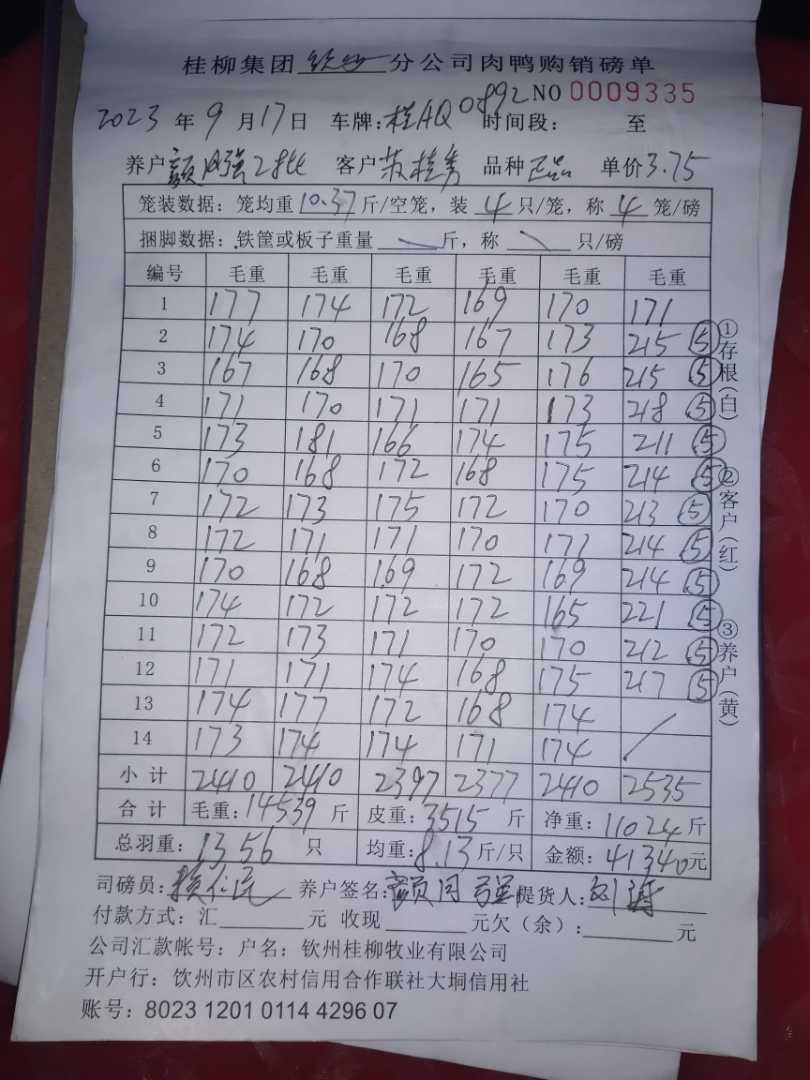 桂柳集团钦州分公司肉鸭购销磅单
NO 0009335
2023年9月17日 车牌:桂AQ0892 时间段: 至
养户 强28批 客户 苏桂秀 品种 正品 单价3.75
笼装数据:笼均重10.37斤/空笼,装4只/笼,称4笼/磅
捆脚数据:铁筐或板子重量 斤,称 只/磅
编号 毛重 毛重 毛重 毛重 毛重 毛重
1 177 174 172 169 170 171
2 174 170 168 167 173 215 ⑤
3 167 168 170 165 176 215 ⑤
4 171 170 171 171 173 218 ⑤
5 173 181 166 174 175 211 ⑤
6 170 168 172 168 175 214 ⑤
7 172 173 175 172 170 213 ⑤
8 172 171 171 170 171 214 ⑤
9 170 168 169 172 169 214 ⑤
10 174 172 172 172 165 221 ⑤
11 172 173 171 170 170 212 ⑤
12 171 171 174 168 175 217 ⑤
13 174 177 172 168 174
14 173 174 174 171 174
小计 2410 2410 2397 2377 2410 2535
合计 毛重:14539斤 皮重:3515斤 净重:11024斤
总羽重:1356只 均重:8.13斤/只 金额:41340元
司磅员: 养户签名: 强 提货人:刘涛
付款方式:汇 元 收现 元欠(余): 元
公司汇款帐号:户名:钦州桂柳牧业有限公司
开户行:饮州市区农村信用合作联社大垌信用社
账号:8023 1201 0114 4296 07
①存根(白)
②客户(红)
③养户(黄)